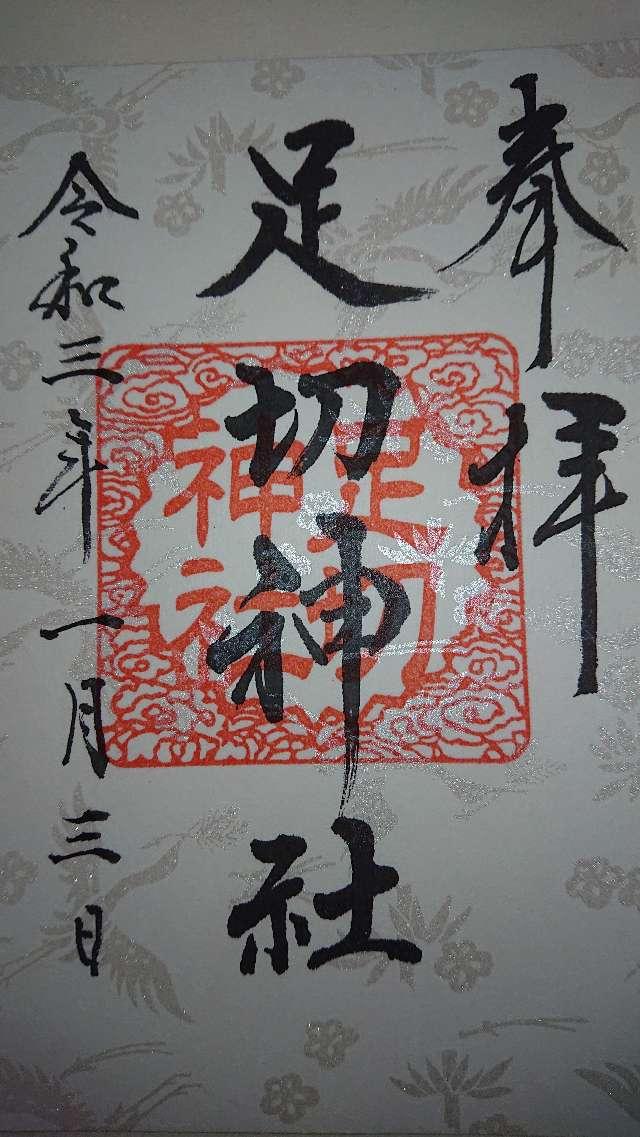 奉拝
足切神社
足切神社
令和三年一月三日